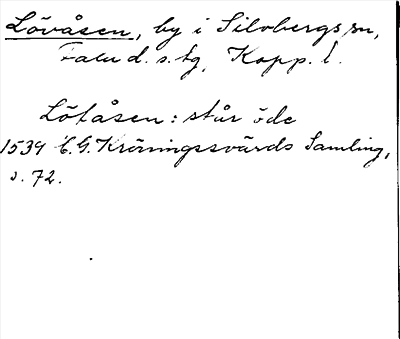 Lövåsen, by i Silvbergs sn,
Falu d. s. tg, Kopp. l.
Löfåsen: står öde
1539 C. G. Kröningssvärds Samling,
s. 72.